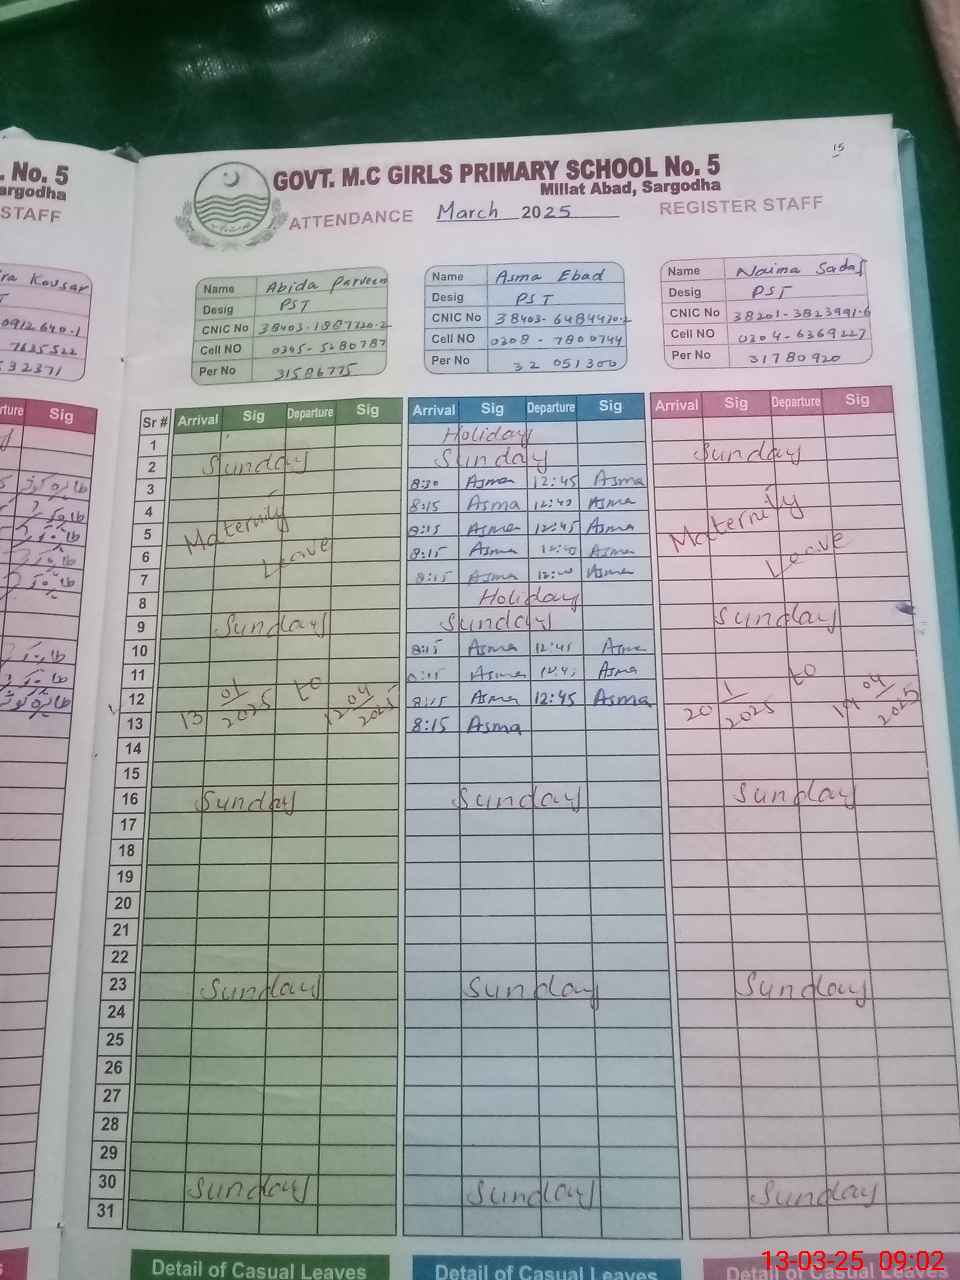 . No. 5
argodha
STAFF
15
GOVT. M.C GIRLS PRIMARY SCHOOL No. 5
Millat Abad, Sargodha
ATTENDANCE March 2025 REGISTER STAFF
ra Kousar
Name Abida Parveen
Desig PST
CNIC No 38403-1887720-2
Cell NO 0345-5280787
Per No 31586775
Name Asma Ebad
Desig PST
CNIC No 38403-6484430-2
Cell NO 0308-7800744
Per No 32051300
Name Naima Sadaf
Desig PST
CNIC No 38201-3823991-6
Cell NO 0304-6369227
Per No 31780920
rture Sig
Sr # Arrival Sig Departure Sig Arrival Sig Departure Sig Arrival Sig Departure Sig
1 Holiday
2 Sunday Sunday Sunday
3 8:30 Asma 12:45 Asma
4 8:15 Asma Asma
5 Maternity 8:15 Asma 12:45 Asma Maternity
6 Leave 8:15 Asma Asma Leave
7 8:15 Asma Asma
8 Holiday
9 Sunday Sunday Sunday
10 8:15 Asma 12:45 Asma
11 Asma Asma
12 8:15 Asma 12:45 Asma
13 13 01/2025 to 12 04/2025 8:15 Asma 20 1/2025 to 19 04/2025
14
15
16 Sunday Sunday Sunday
17
18
19
20
21
22
23 Sunday Sunday Sunday
24
25
26
27
28
29
30 Sunday Sunday Sunday
31
Detail of Casual Leaves Detail of Casual Leaves Detail of Casual Leaves
13-03-25 09:02